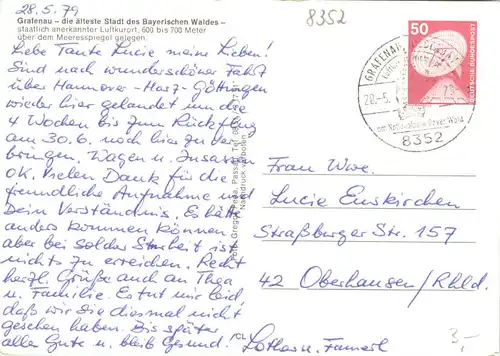 28.5.79
8352
Grafenau – die älteste Stadt des Bayerischen Waldes –
staatlich anerkannter Luftkurort, 600 bis 700 Meter
über dem Meeresspiegel gelegen.
Liebe Tante Lucie meine Lieben!
Sind nach wunderschöner Fahrt
über Hannover-Harz-Göttingen
wieder hier gelandet um die
4 Wochen bis zum Rückflug
am 30.6. noch hier zu ver
bringen. Wagen u. Insassen
OK. Vielen Dank für die
freundliche Aufnahme und
Dein Verständnis. Es hätte
anders kommen können
aber bei solcher Sturheit ist
nichts zu erreichen. Recht
herzl. Grüße auch an Thea
u. Familie. Es tut mir leid,
daß wir Die diesmal nicht
gesehen haben. Bis später
alles Gute u. bleib Gesund.
Lothar u. Fam
Nachdruck verboten
/CL
50
DEUTSCHE BUNDESPOST
GRAFENAU
28.-5.
am Nationalpark Bayer. Wald
8352
Frau Wwe.
Lucie Euskirchen
Straßburger Str. 157
42 Oberhausen/Rhld.
3,-